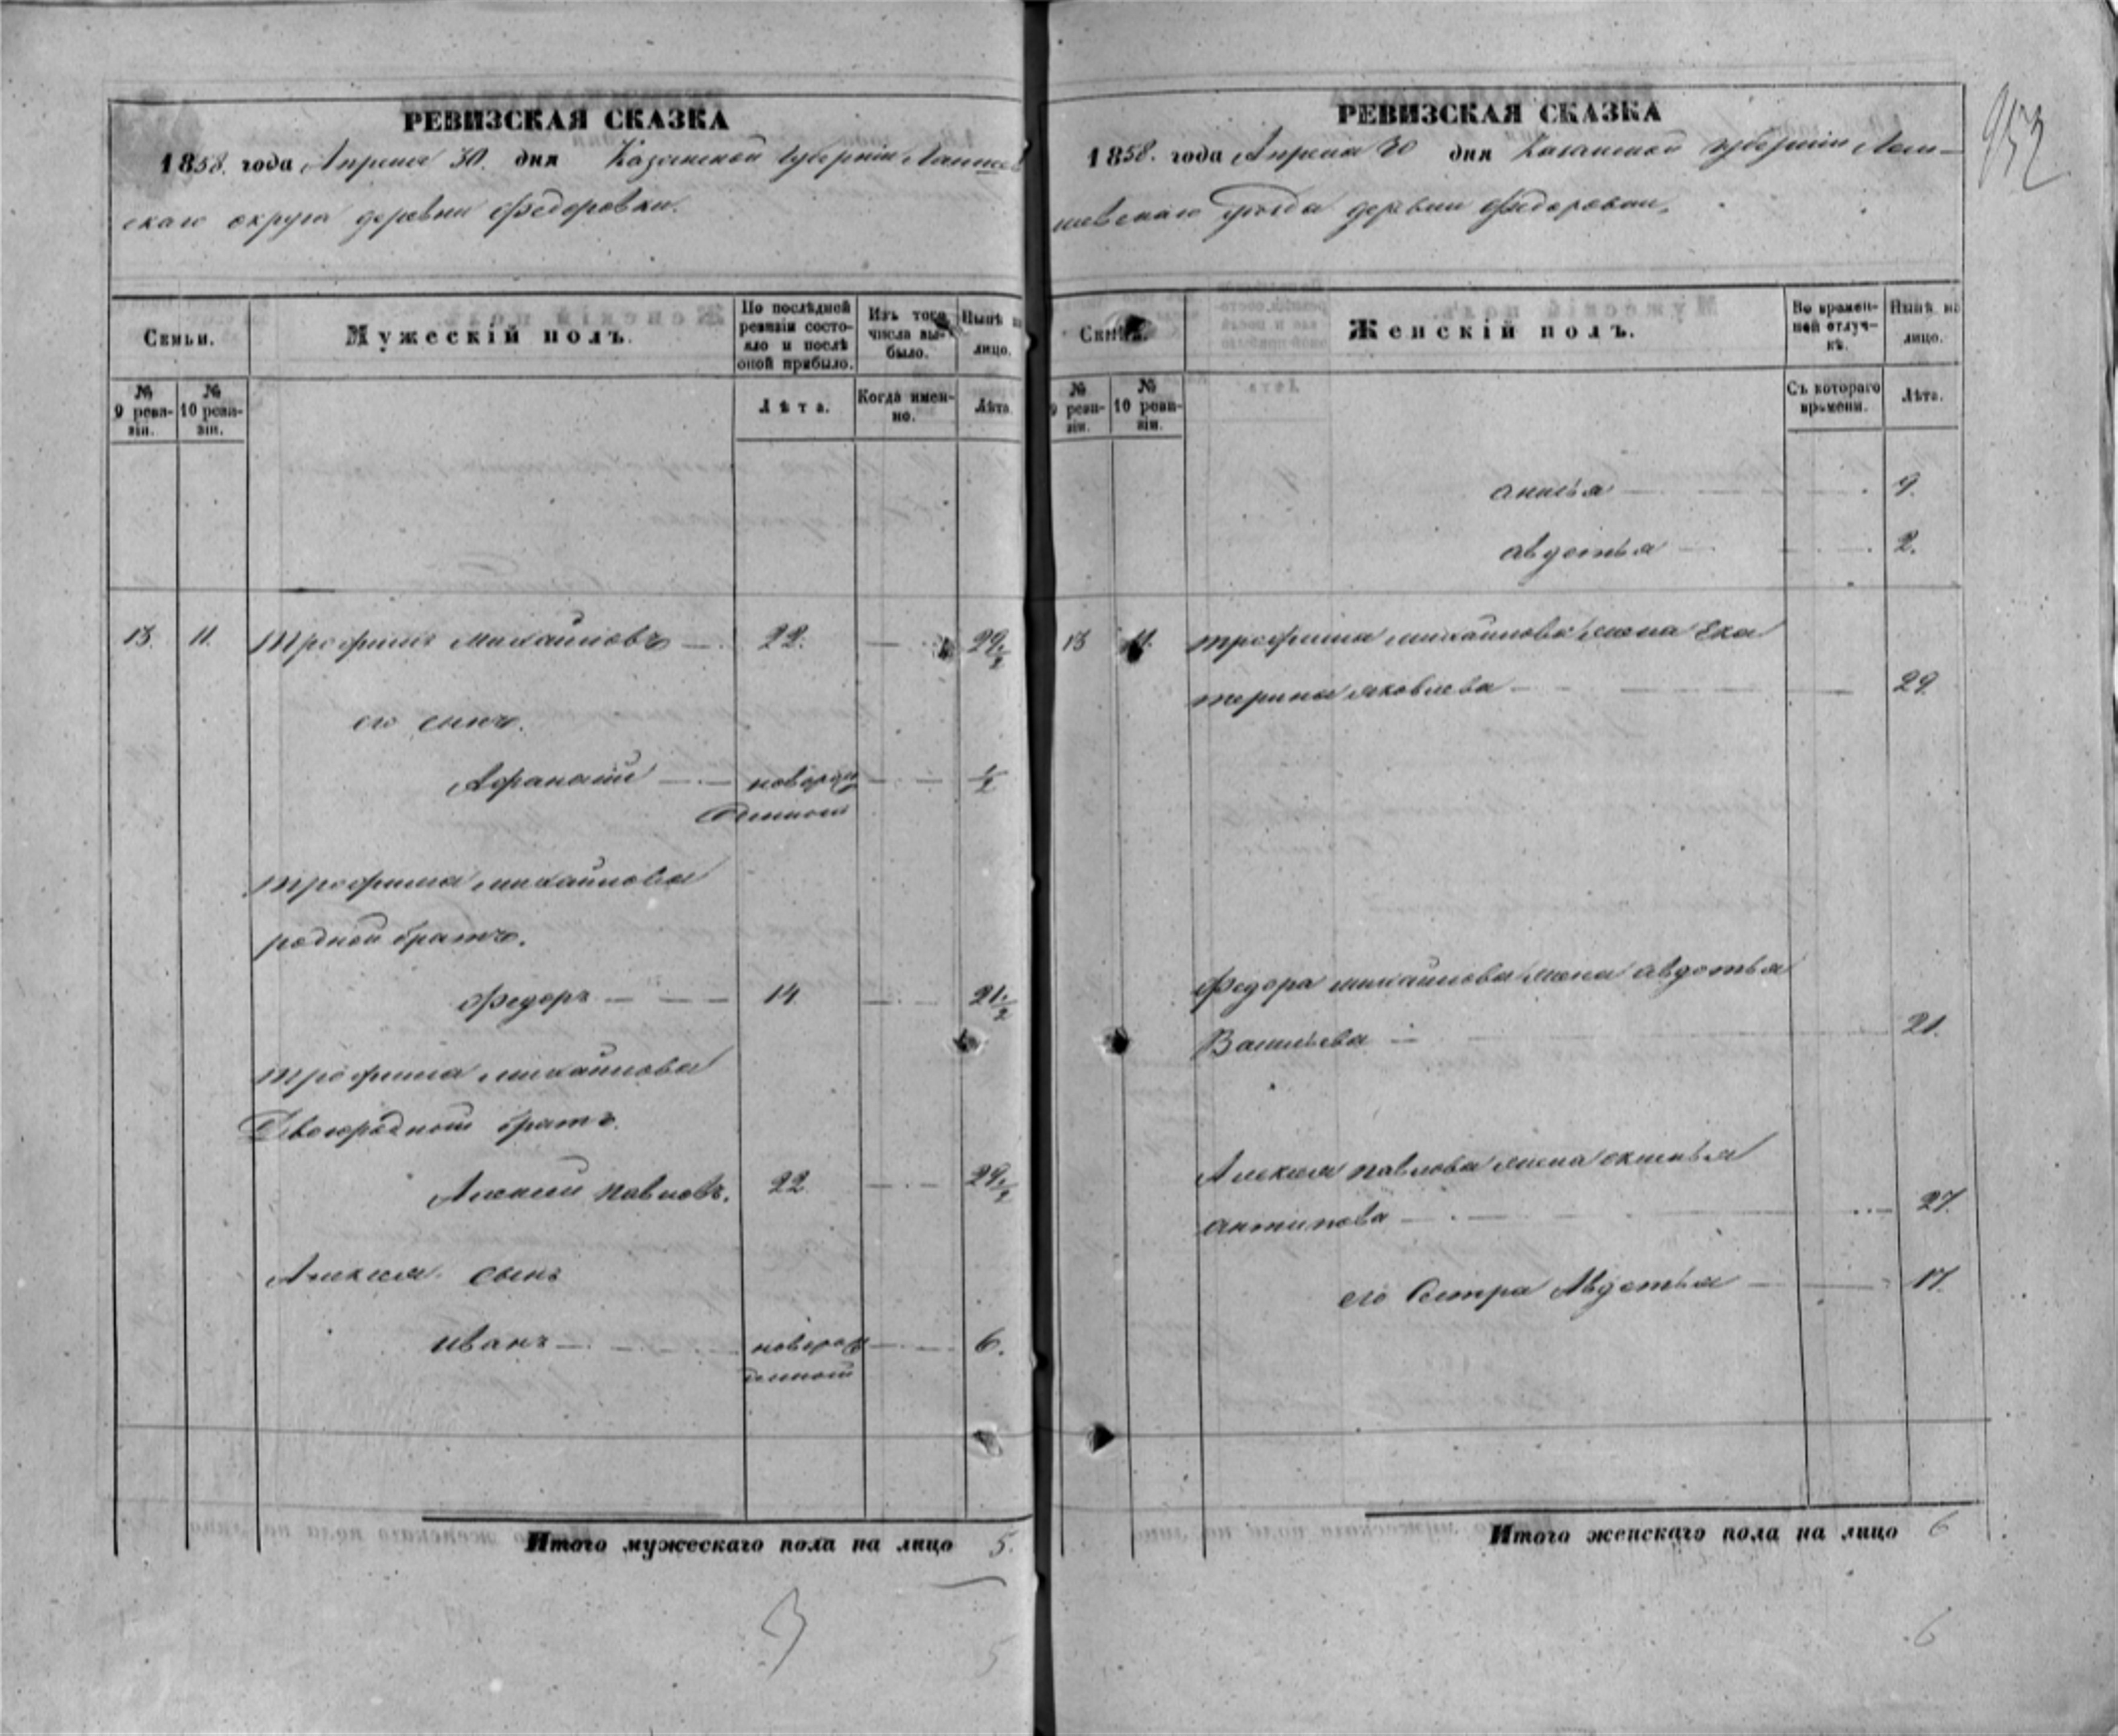 РЕВИЗСКАЯ СКАЗКА
1858. года Апреля 30. дня Казанской губернiи Лаишев
скаго округа деревни Федоровки.
Семьи.
Мужескiй полъ.
По послѣдней ревизiи состояло и послѣ оной прибыло.
Изъ того числа выбыло.
Нынѣ на лицо.
№ 9 ревизiи.
№ 10 ревизiи.
Лѣта.
Когда именно.
Лѣта
13. 11. Трофимъ Михайловъ 22. 29 1/2
его сынъ.
Афанасiй новорож 1/2
денной
Трофима Михайлова
родной братъ.
Федоръ 14 21 1/2
Трофима Михайлова
Двоюродной братъ.
Алексей Павловъ. 22 29 1/2
Алексея сынъ
Иванъ новорож 6.
денной
Итого мужескаго пола на лицо 5.
5
РЕВИЗСКАЯ СКАЗКА
1858. года Апреля 30 дня Казанской губернiи Лаи-
шевскаго уезда деревни Федоровки.
952
Семьи.
Женскiй полъ.
Во временной отлучкѣ.
Нынѣ на лицо.
№ 9 ревизiи.
№ 10 ревизiи.
Съ котораго времени.
Лѣта.
анисья 9.
авдотья 2.
13 11. Трофима Михайлова жена Ека
терина Яковлева 29
Федора Михайлова жена Авдотья
Васильева 21.
Алексея Павлова жена аксинья
антипова 27.
его Сестра Авдотья 17.
Итого женскаго пола на лицо 6
6